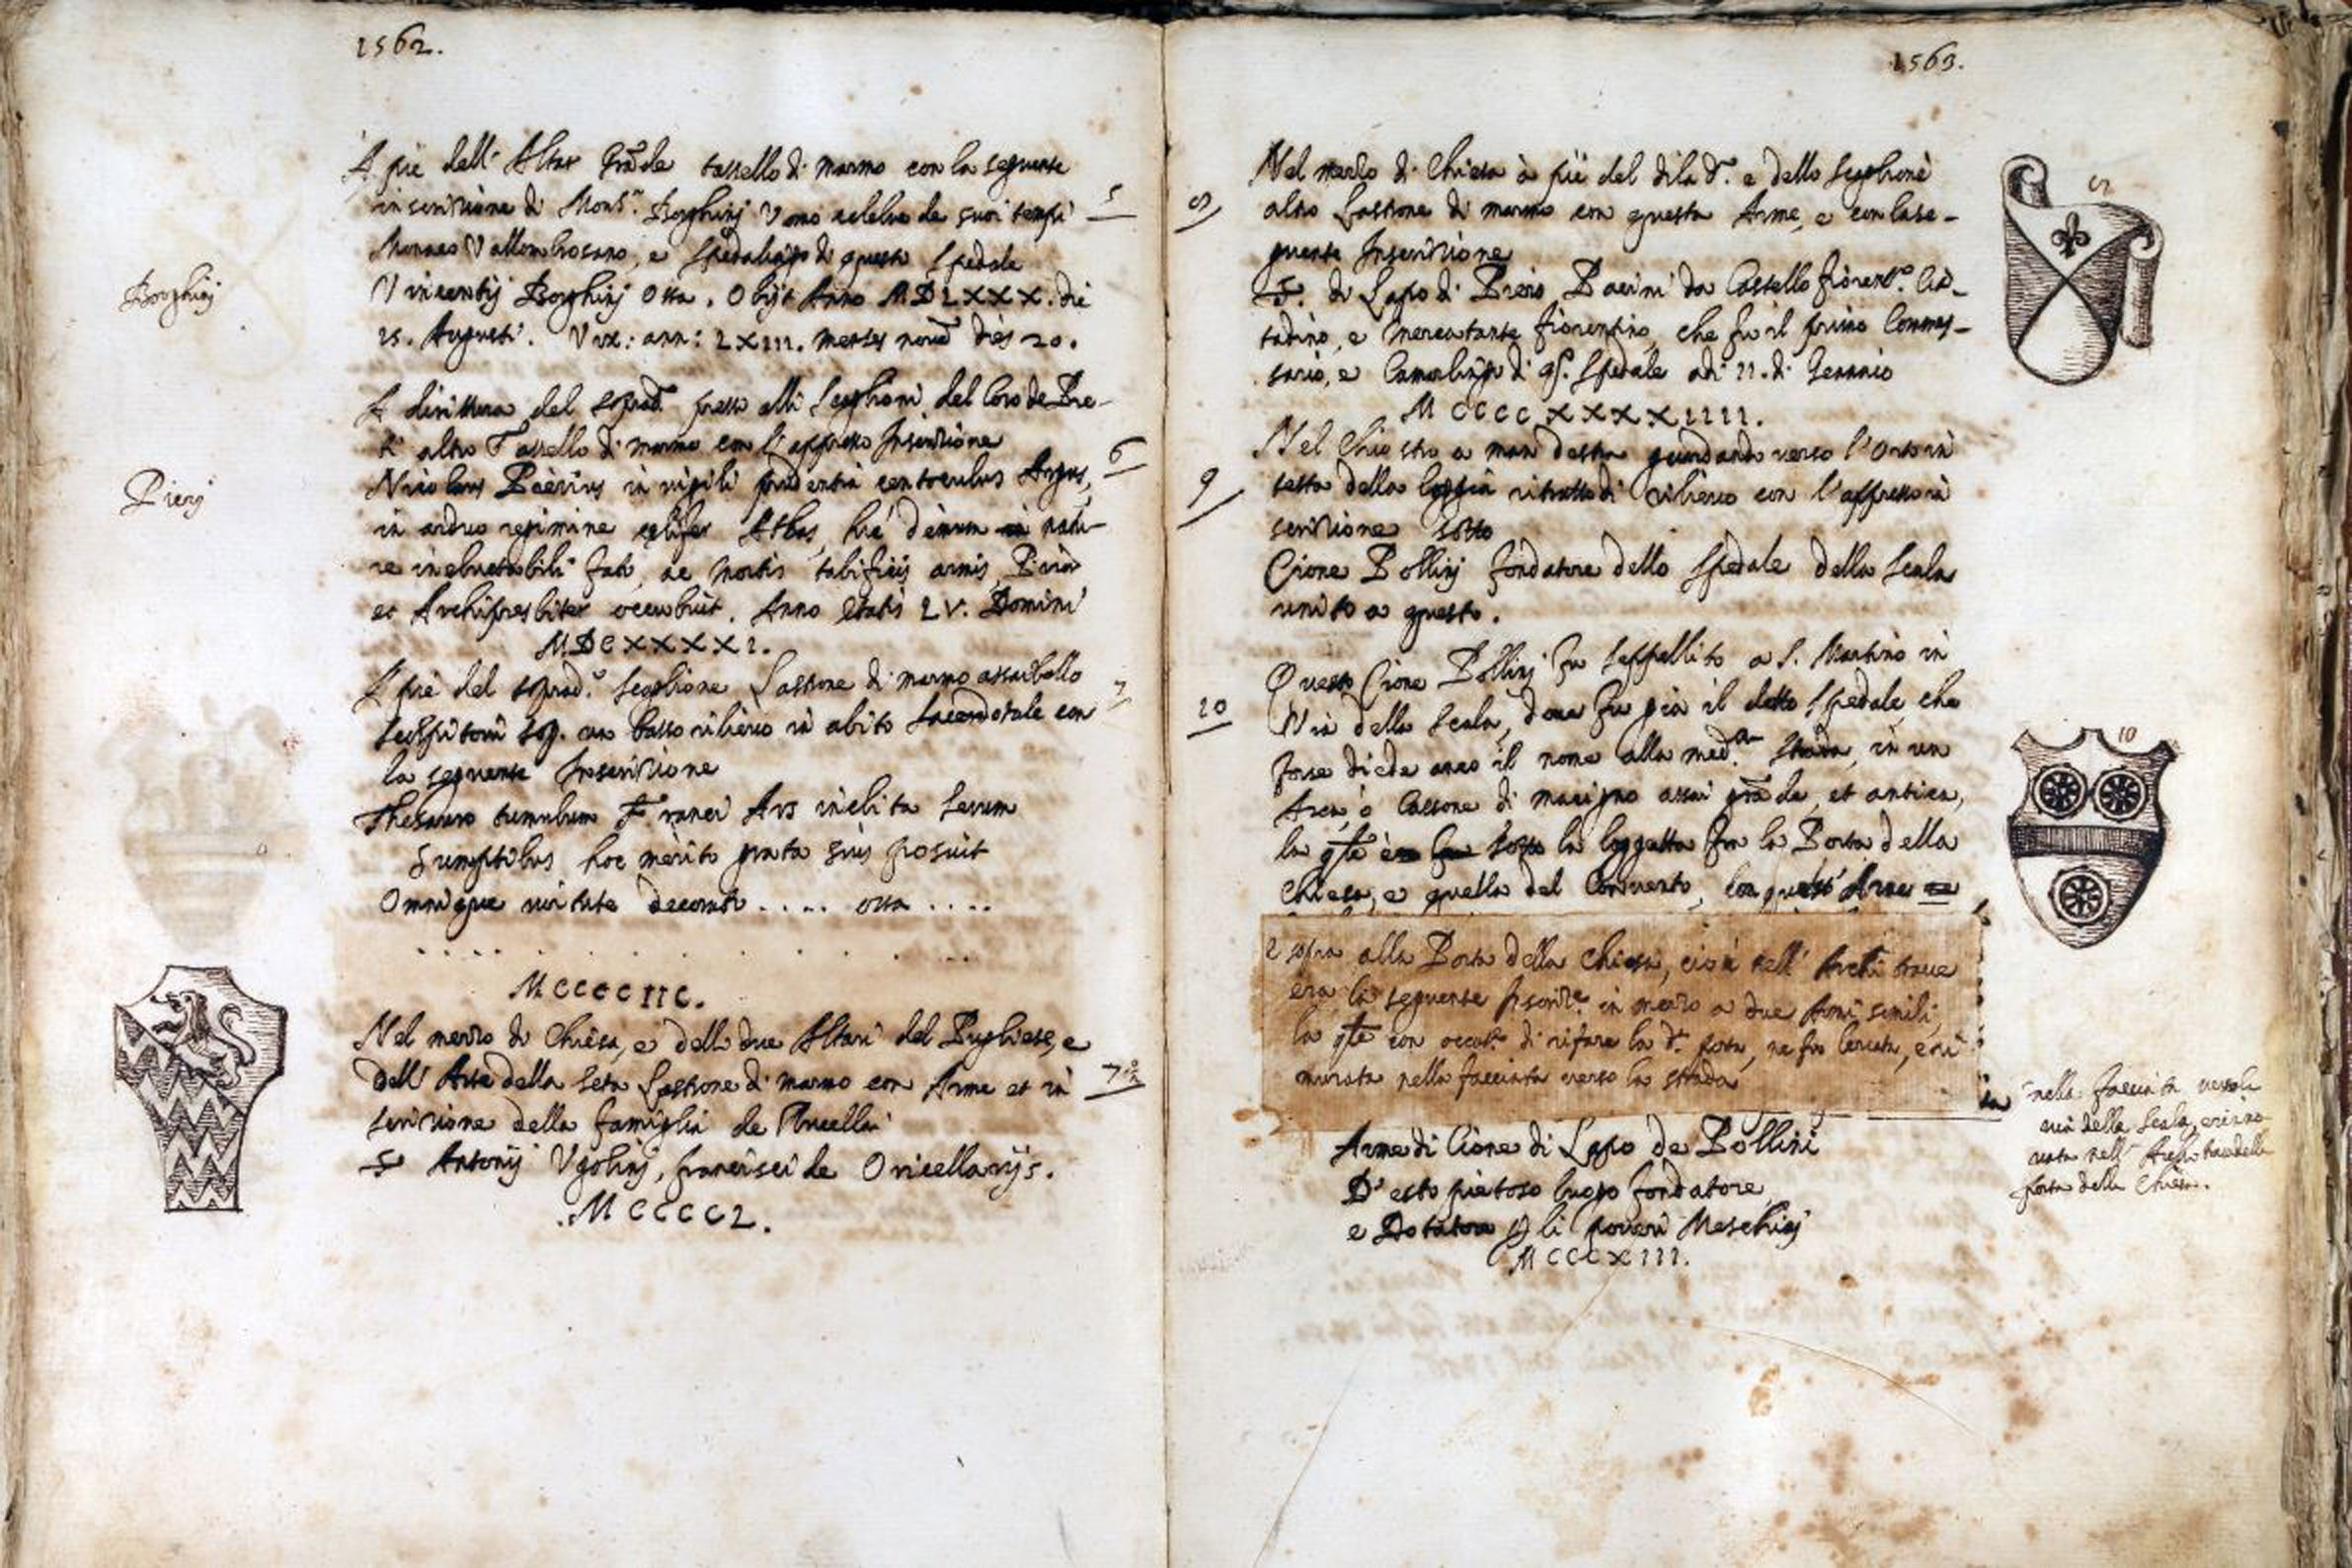 1562.
A piè dell' Altar Grãde tassello di marmo con la seguente
inscrizione di Mons.r Borghinj Uomo celebre de suoi tempi
5
Monaco Vallombrosano, e Spedalingo di questo Spedale
Borghinj
Vincentij Borghinj Ossa. Obijt Anno MDLXXX. die
15. Augusti. Vix: ann: LXIII. menses novẽ dies 20.
A dirittura del soprad.o presso alli Scaglioni del Coro de Pre-
ti altro Tassello di marmo con l'appresso Inscrizione
6
Pierij
Nicolaus Pierius in vigili prudentia centoculus Argus,
in arduo regimine celifer Athas, hic demum in natu-
re ineluctabili fato, ac mortis tabificis armis, Prior
et Archipresbiter occubuit. Anno etatis LV. Domini
MDCXXXXI.
A piè del soprad.o Scaglione Lastrone di marmo assai bello
7
sop. un basso rilievo in abito Sacerdotale con
la seguente Inscrizione
Thesauro tumulum Franci Ars inclita Serum
Sumptibus hoc merito grata suis posuit
Omnique virtute decorati .... ossa ....
. . . . . . . . . .
MCCCCIIC.
Nel mezzo di Chiesa, e delli due Altari del Pugliese, e
dell' Arte della Seta Lastrone di marmo con Arme et in
scrizione della famiglia de Rucellai
S. Antonij Ugolinj, francisci de Oricellarijs.
.MCCCCL.
1563.
Nel mezzo di Chiesa à piè del di là d.o e dello Scaglione
8
altro Lastrone di marmo con questa Arme, e con la se-
guente Inscrizione
S. di Lapo di Piero Pacini da Castello fiorent.o Cit-
tadino, e Mercatante fiorentino, che fu il primo Commes-
sario, e Camarlingo di q.o Spedale adi 22. di Gennaio
MCCCCXXXXIIII.
Nel Chiostro a man destra guardando verso l'Orto in
9
testa della loggia ritratto di rilievo con l'appresso in
scrizione sotto
Cione Pollinj fondatore dello Spedale della Scala
unito a questo.
Questo Cione Pollinj fu seppellito a S. Martino in
10
Via della Scala, dove fu già il detto Spedale, che
forse diede anco il nome alla med.ma strada, in un
Arca, ò Cassone di macigno assai grãde, et antica,
la qle sotto la loggetta fra la Porta della
Chiesa, e quella del Convento, con quest' Arme
10
E sopra alla Porta della Chiesa, cioè nell' Architrave
era la seguente Inscriz.e in mezzo a due Armi simili,
la qle con occas.e di rifare la d.a porta, ne fu levata, e ri
murata nella facciata verso la strada
nella facciata verso la
via della Scala, era mu-
rata nell' Architrave della
porta della Chiesa.
Arme di Cione di Lapo de Pollini
D' esto pietoso luogo fondatore
e Dotatore p li poveri Meschinj
MCCCXIII.